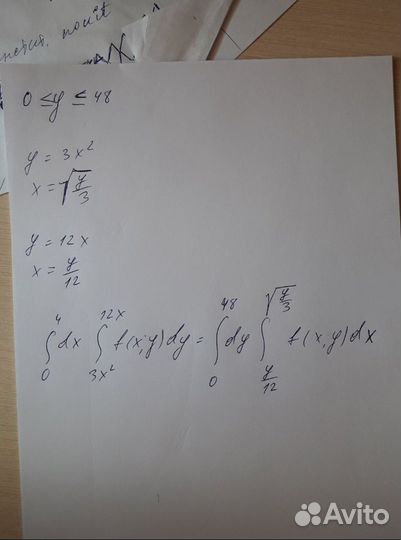 0 ≤ y ≤ 48
y = 3x²
x = √(y/3)
y = 12x
x = y/12
∫₀⁴ dx ∫_{3x²}^{12x} f(x;y)dy = ∫₀⁴⁸ dy ∫_{y/12}^{√(y/3)} f(x,y)dx
Avito